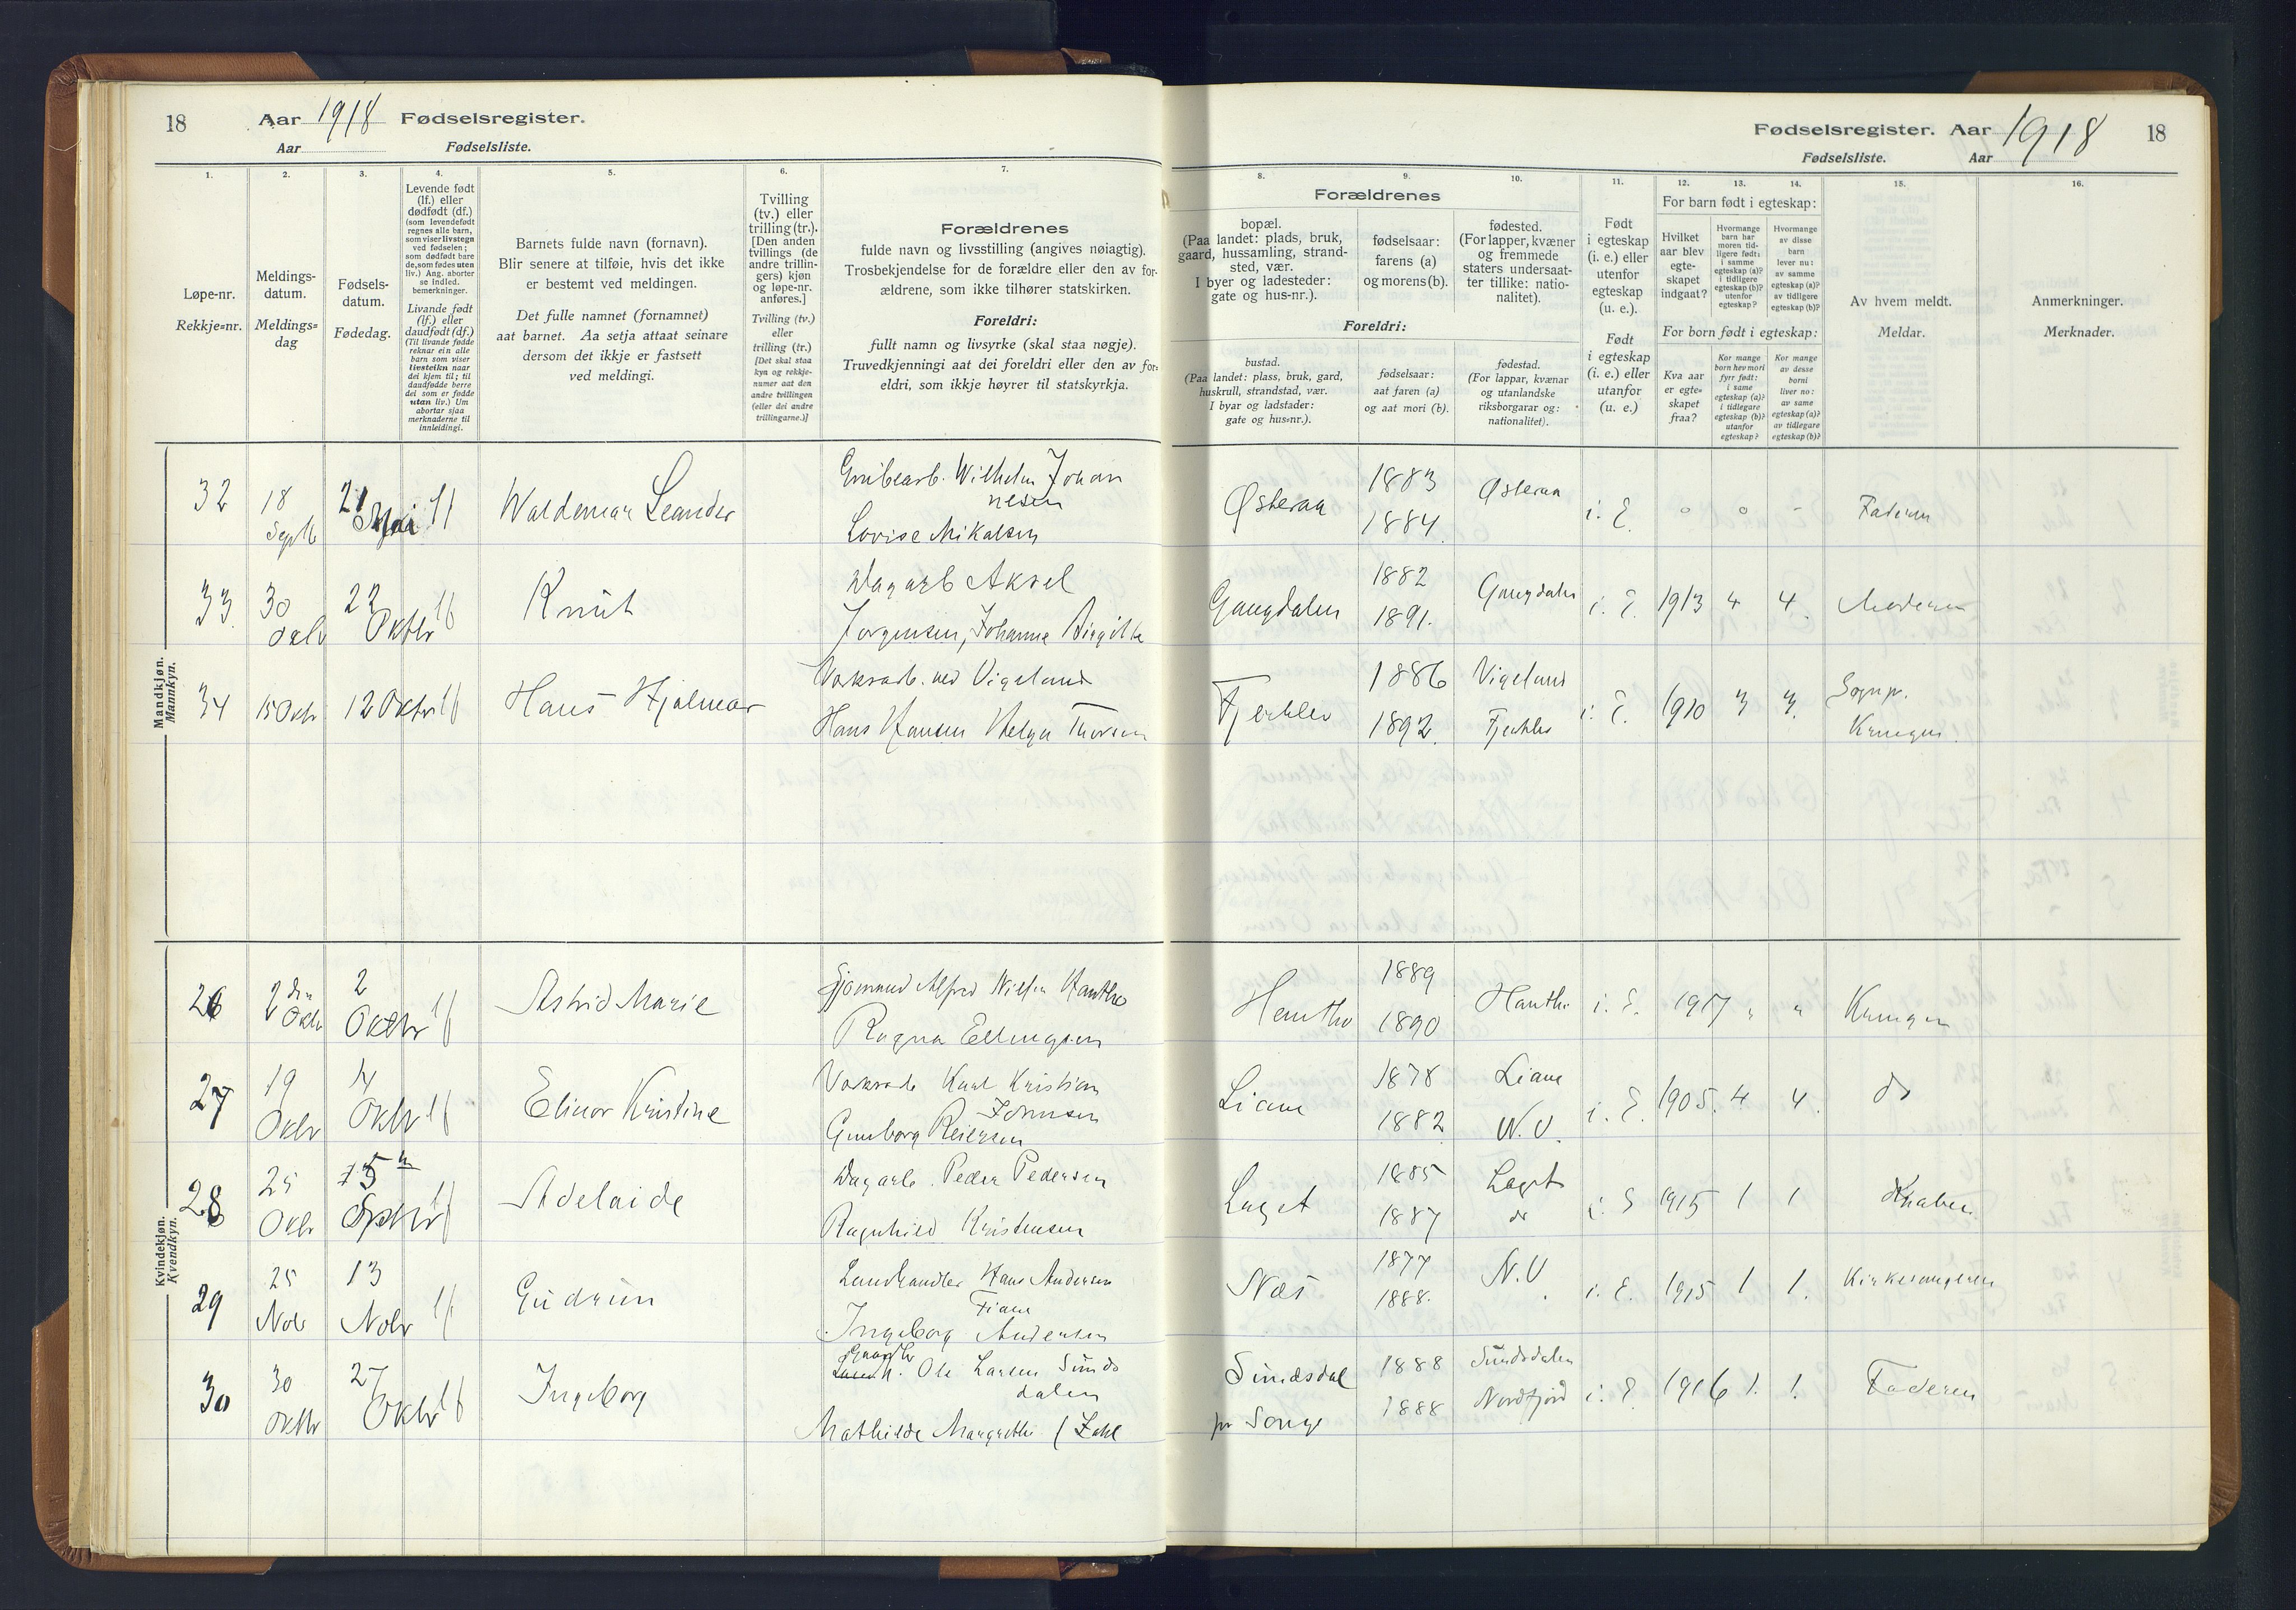 18
Aar 1918 Fødselsregister.
Aar Fødselsliste.
Fødselsregister. Aar 1918 18
Fødselsliste. Aar
1.
Løpe-nr.
Rekkje=nr.
2.
Meldings-
datum.
Meldings=
dag
3.
Fødsels-
datum.
Fødedag.
4.
Levende født
(lf.) eller
dødfødt (df.)
(som levendefødt
regnes alle barn,
som viser livstegn
ved fødselen;
som dødfødt bare
de, som fødes uten
liv.) Ang. aborter
se indled.
bemerkninger.
Livande født
(lf.) eller
daudfødt (df.)
(Til livande fødde
reknar ein alle
barn som viser
livsteikn naar
dei kjem til; til
daudfødde berre
dei som er fødde
utan liv.) Um
abortar sjaa
merknaderne til
innleidingi.
5.
Barnets fulde navn (fornavn).
Blir senere at tilføie, hvis det ikke
er bestemt ved meldingen.
Det fulle namnet (fornamnet)
aat barnet. Aa setja attaat seinare
dersom det ikkje er fastsett
ved meldingi.
6.
Tvilling
(tv.) eller
trilling (tr.).
[Den anden
tvillings (de
andre trillin-
gers) kjøn
og løpe-nr.
anføres.]
Tvilling (tv.)
eller
trilling (tr.)
[Det skal staa
kyn og rekkje-
numer aat den
andre tvillingen
(eller dei andre
trillingarne.)]
7.
Forældrenes
fulde navn og livsstilling (angives nøiagtig).
Trosbekjendelse for de forældre eller den av for-
ældrene, som ikke tilhører statskirken.
Foreldri:
fullt namn og livsyrke (skal staa nøgje).
Truvedkjenningi aat dei foreldri eller den av for-
eldri, som ikkje høyrer til statskyrkja.
Forældrenes
8.
bopæl.
(Paa landet: plads, bruk,
gaard, hussamling, strand-
sted, vær.
I byer og ladesteder:
gate og hus-nr.).
9.
fødselsaar:
farens (a)
og morens (b).
10.
fødested.
(For lapper, kvæner
og fremmede
staters undersaat-
ter tillike: natio-
nalitet).
Foreldri:
bustad.
(Paa landet: plass, bruk, gard,
huskrull, strandstad, vær.
I byar og ladstader:
gate og hus=nr.).
fødselsaar:
aat faren (a)
og aat mori (b).
fødestad.
(For lappar, kvænar
og utanlandske
riksborgarar og:
nationalitet).
11.
Født
i egteskap
(i. e.) eller
utenfor
egteskap
(u. e.).
Født
i egteskap
(i. e.) eller
utanfor
(u. e.)
12. 13. 14.
For barn født i egteskap:
Hvilket
aar blev
egte-
skapet
indgaat?
Hvormange
barn har
moren tid-
ligere født:
i samme
egteskap (a)?
i tidligere
egteskap (b)?
utenfor
egteskap?
Hvormange
av disse
barn
lever nu:
av samme
egteskap (a)?
av tidligere
egteskap (b)?
For born født i egteskap:
Kva aar
er egte-
skapet
fraa?
Kor mange
born hev mori
fyrr født:
i same
egteskap (a)?
i tidlegare
egteskap (b)?
utanfor
egteskap?
Kor mange
av desse
borni
liver no:
av same
egteskap (a)?
av tidlegare
egteskap (b)?
15.
Av hvem meldt.
Meldar.
16.
Anmerkninger.
Merknader.
Mandkjøn.
Mannkyn.
32 18 Septb 21 Mai lf Waldemar Leander
Wilhelm Johan
nesen
Lovise Mikalsen
Østeraa 1883 1884. Østeraa i. E. Faderen
33. 30 Oktb 22 Oktbr lf Knut
Dagarb Aksel
Jørgensen, Johanne Birgitte
Gangdalen 1882 1891. Gangdalen i. E. 1913 4 4. Moderen
34 15 Oktbr 12 Oktbr lf Hans Hjalmar
Verksarb. ved Vigeland
Hans Hansen Helga Thorsen
1886 1892. Vigeland i. E. 1910 3 3. Sognep.
Kvindekjøn.
Kvendkyn.
26 2den Oktbr 2 Oktbr lf Astrid Marie
Sjømand Alfred Nilsen
Ragna Ellingsen
1889 1890 i. E. 1917 " "
27 19 Oktbr 4 Oktbr lf Elinor Kristine
Karl Kristian
Gunborg Reiersen
Liane 1878 1882 Liane N. V. i. E. 1905. 4 4. do
28 25 Oktbr 15de Septbr lf Adelaide
Dagarb. Peder Pedersen
Ragnhild Kristensen
Laget 1885 1887 Laget do i. E 1915 1 1
29 25 Nobr 13 Nobr lf Gudrun
Landhandler Hans Andersen
Fiane
Ingeborg Andersen
Næs 1877 1888. N. V. i. E. 1915 1 1. Kirkesangeren
30 30 Oktbr 27 Oktbr lf Ingeborg
Ole Larsen Sunds
dalen
Mathilde Margrethe f Zahl
Sundsdal
pr Songe
1888 1888 Sundsdalen Nordfjord i. E. 1916 1. 1. Faderen